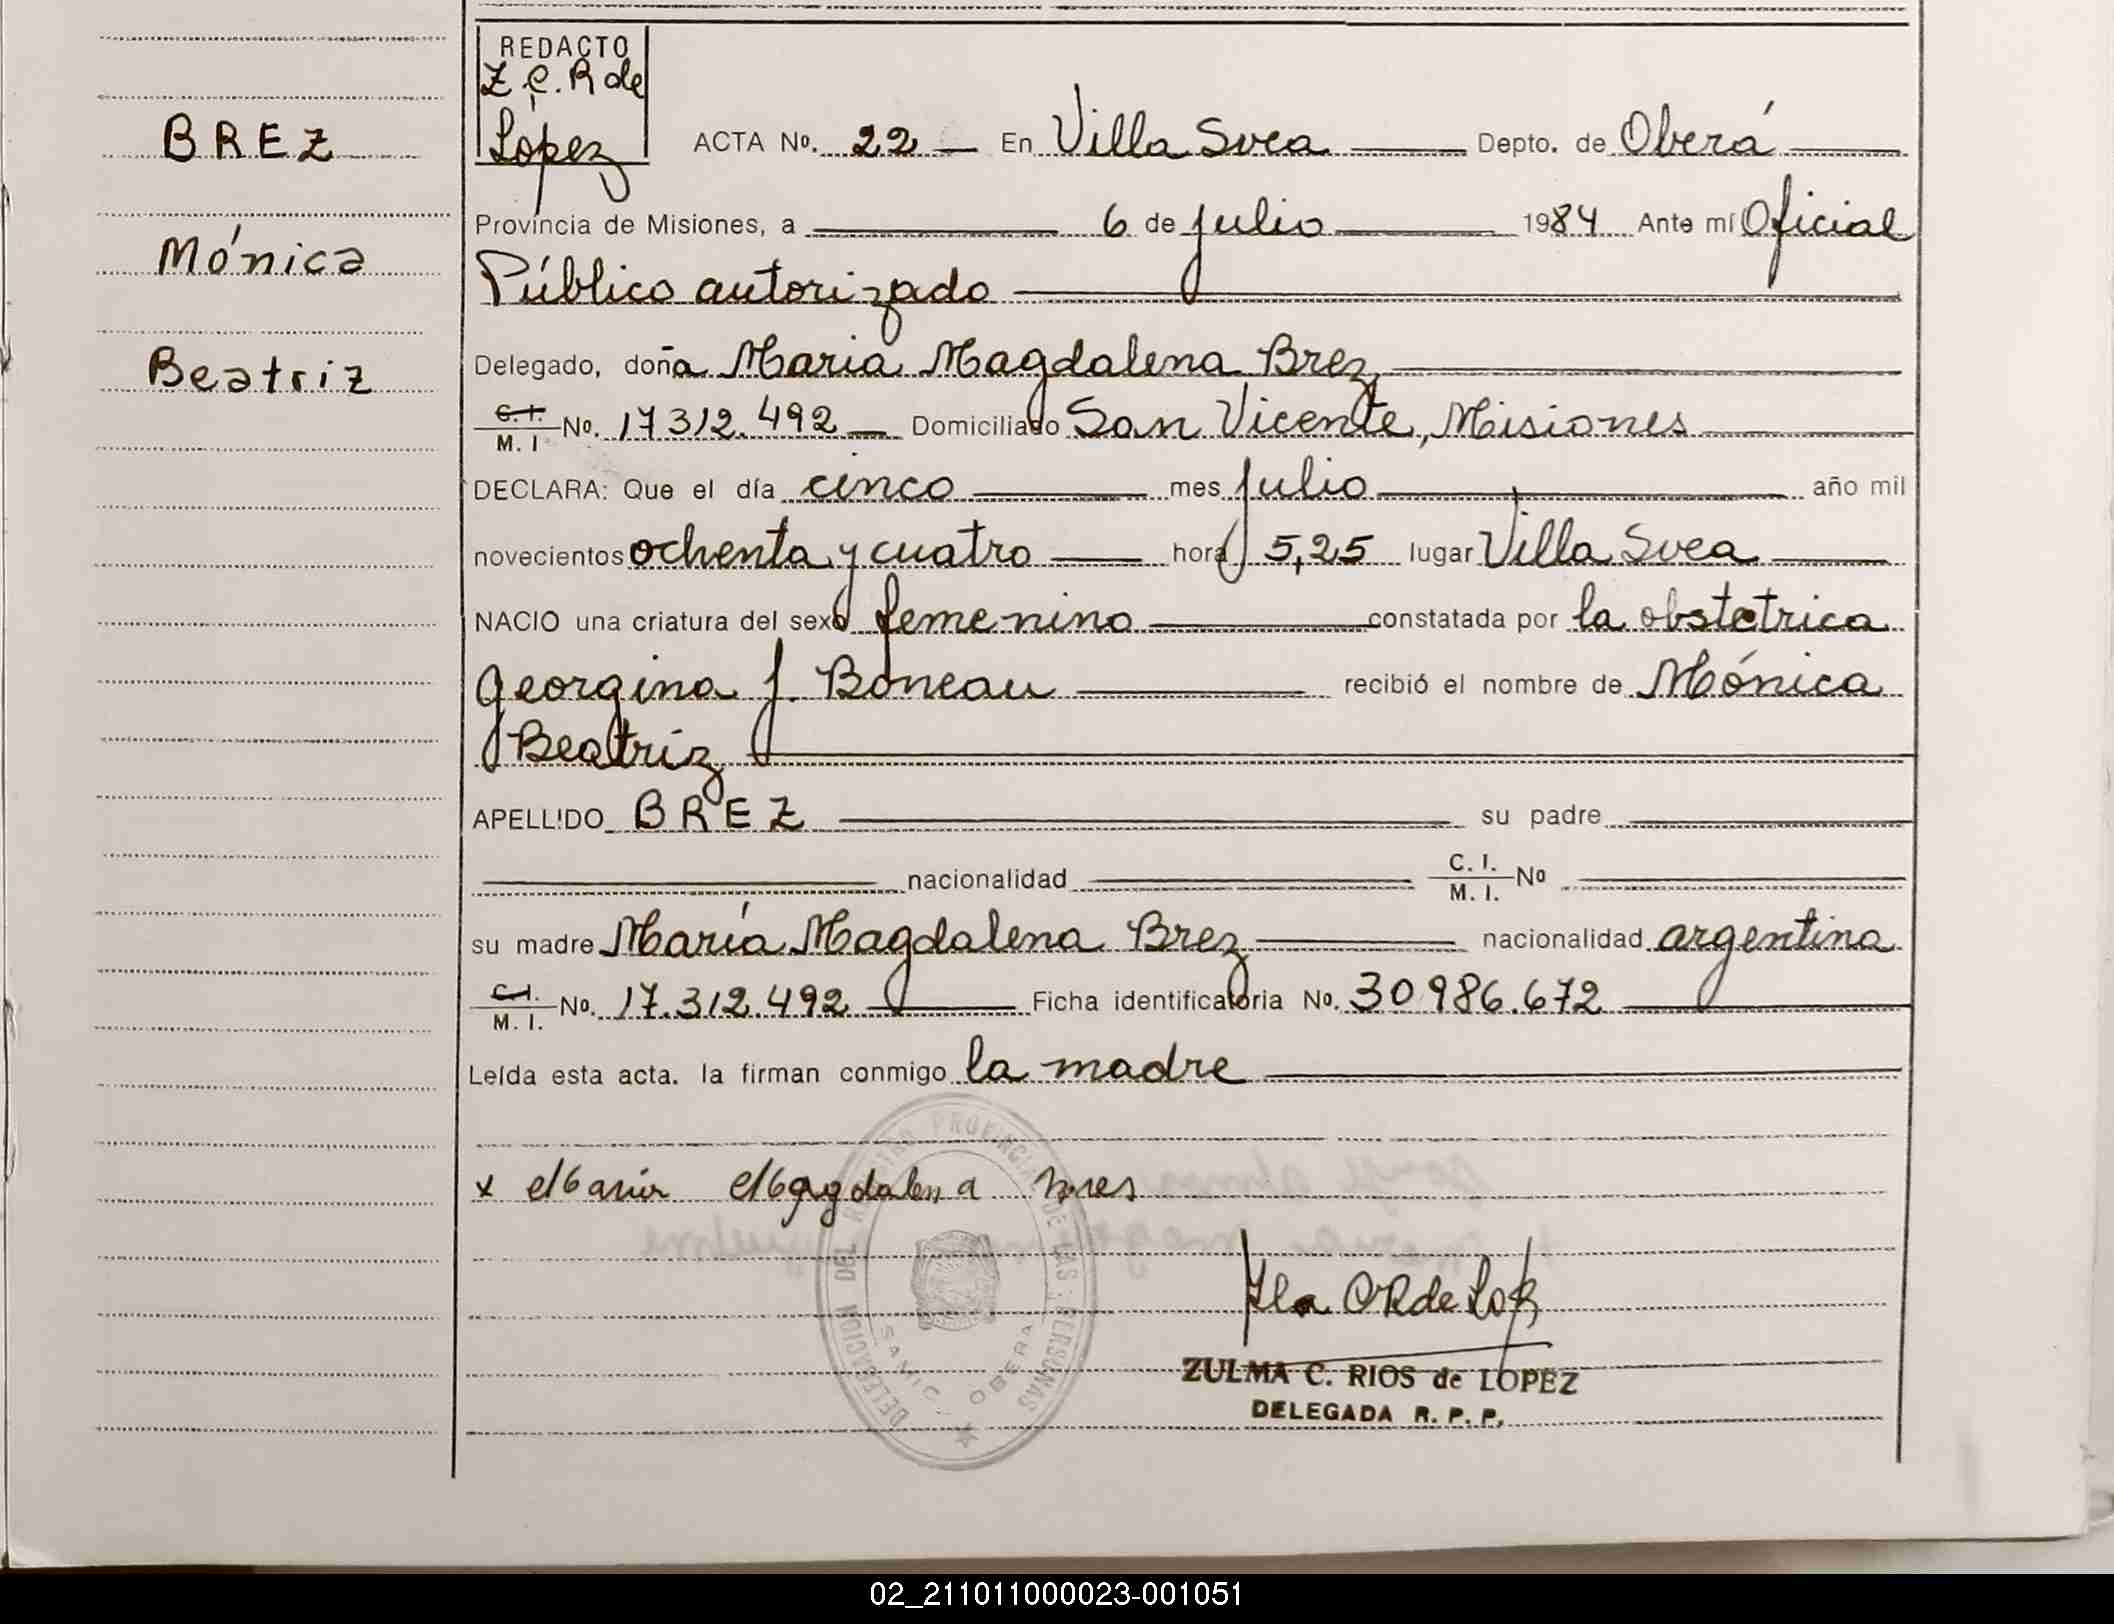 REDACTO
Z. C. R de
López
BREZ
Mónica
Beatriz
ACTA No. 22 En Villa Svea Depto. de Oberá
Provincia de Misiones, a 6 de julio 1984 Ante mí Oficial
Público autorizado
Delegado, doña Maria Magdalena Brez
C.I. M.I No. 17312.492 Domiciliado San Vicente, Misiones
DECLARA: Que el día cinco mes julio año mil
novecientos ochenta y cuatro hora 5,25 lugar Villa Svea
NACIO una criatura del sexo femenino constatada por la obstetrica
Georgina J. Boneau recibió el nombre de Mónica
Beatríz
APELLIDO BREZ su padre
nacionalidad C. I. M. I. No
su madre María Magdalena Brez nacionalidad argentina
C.I. M. I. No. 17.312.492 Ficha identificatoria No. 30986.672
Leída esta acta. la firman conmigo la madre
x Maria Magdalena Bres
ZULMA C. RIOS de LOPEZ
DELEGADA R. P. P.
DELEGACION DEL REGISTRO PROVINCIAL DE LAS PERSONAS
OBERA
02_211011000023-001051